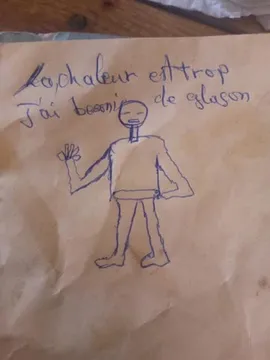 La chaleur est trop
J'ai besoni de glason